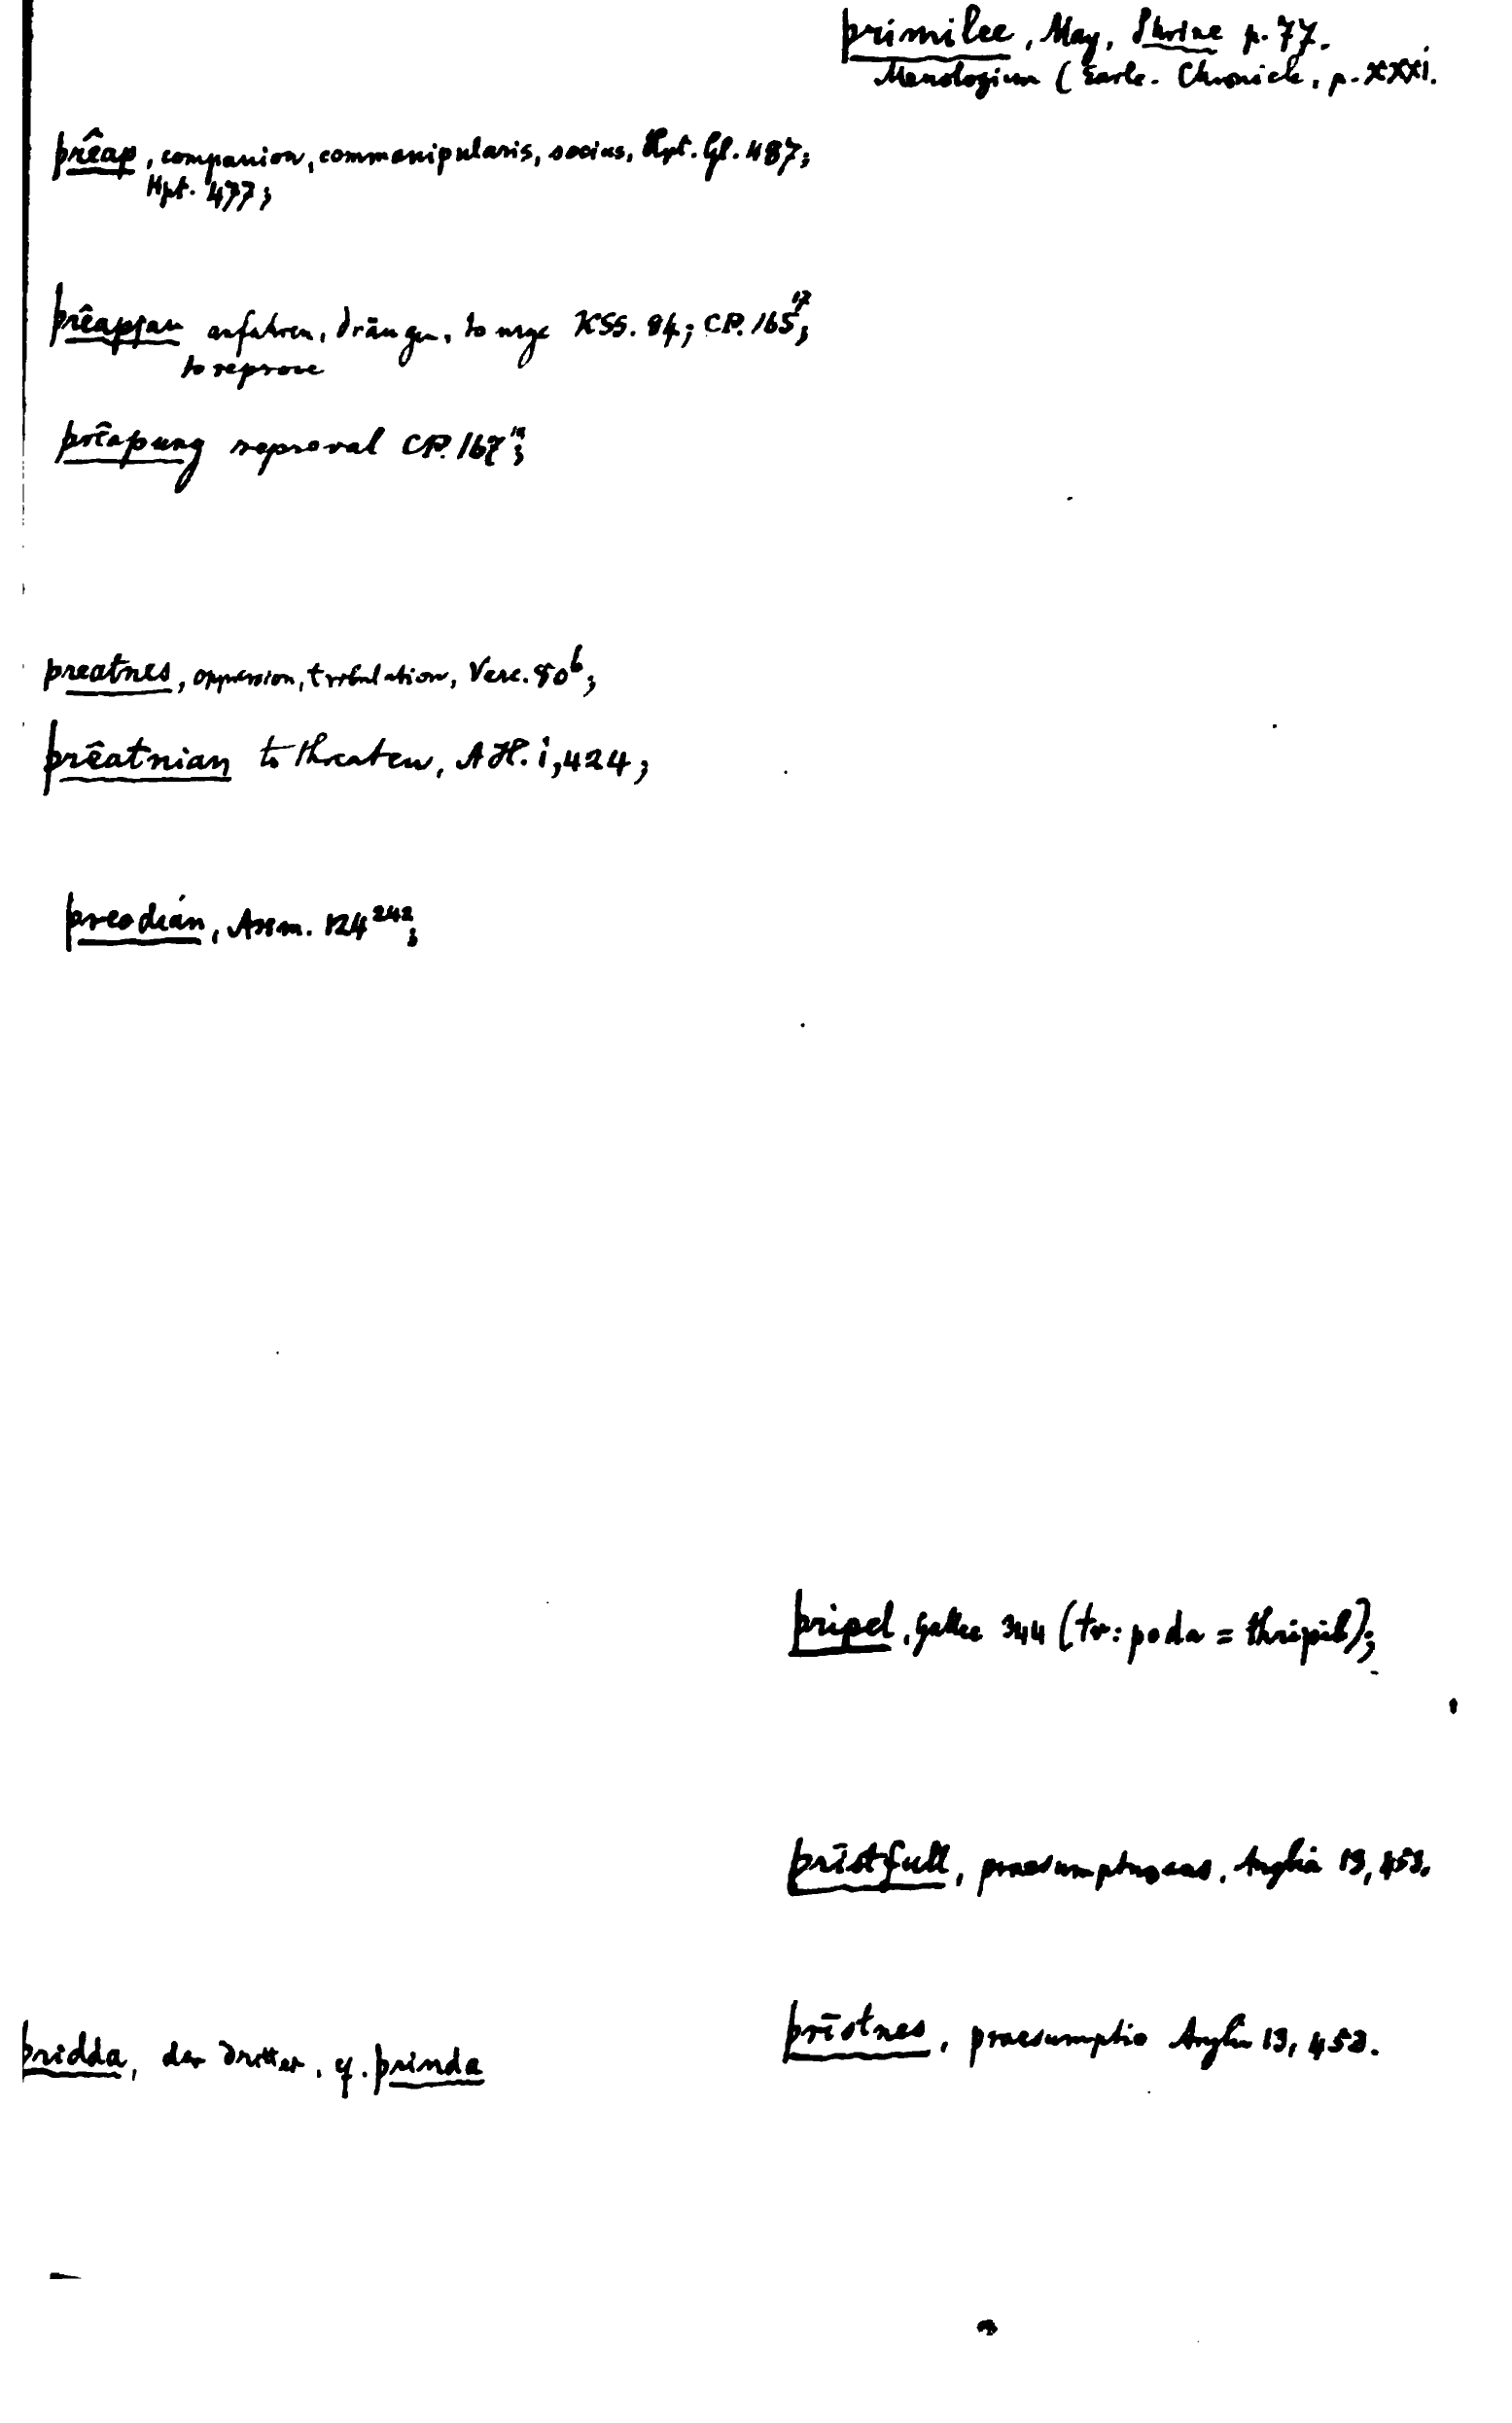 þrimilce, May, Shrine p. 77.
Menologium (Earle. Chronicle, p. xxxi.
þrêap, companion, commanipularis, socius, Hpt. Gl. 487;
Hpt. 477;
þrêapian anfahren, drängen, to urge KSS. 84; CP. 165¹⁷;
to reprove
þrêapung reproval CP. 167;
þreatnes, oppression, tribulation, Verc. 80ᵇ;
þrêatnian to threaten, AH. i, 424;
þreodian, Assm. 124²⁴²;
þripel, Gallee 344 (tr: poda = thripil);
þrīstfull, praesumptuosus, Anglia 13,
þridda, der dritter, cf. þrinda
þrīstnes, praesumptio Anglia 13, 453.